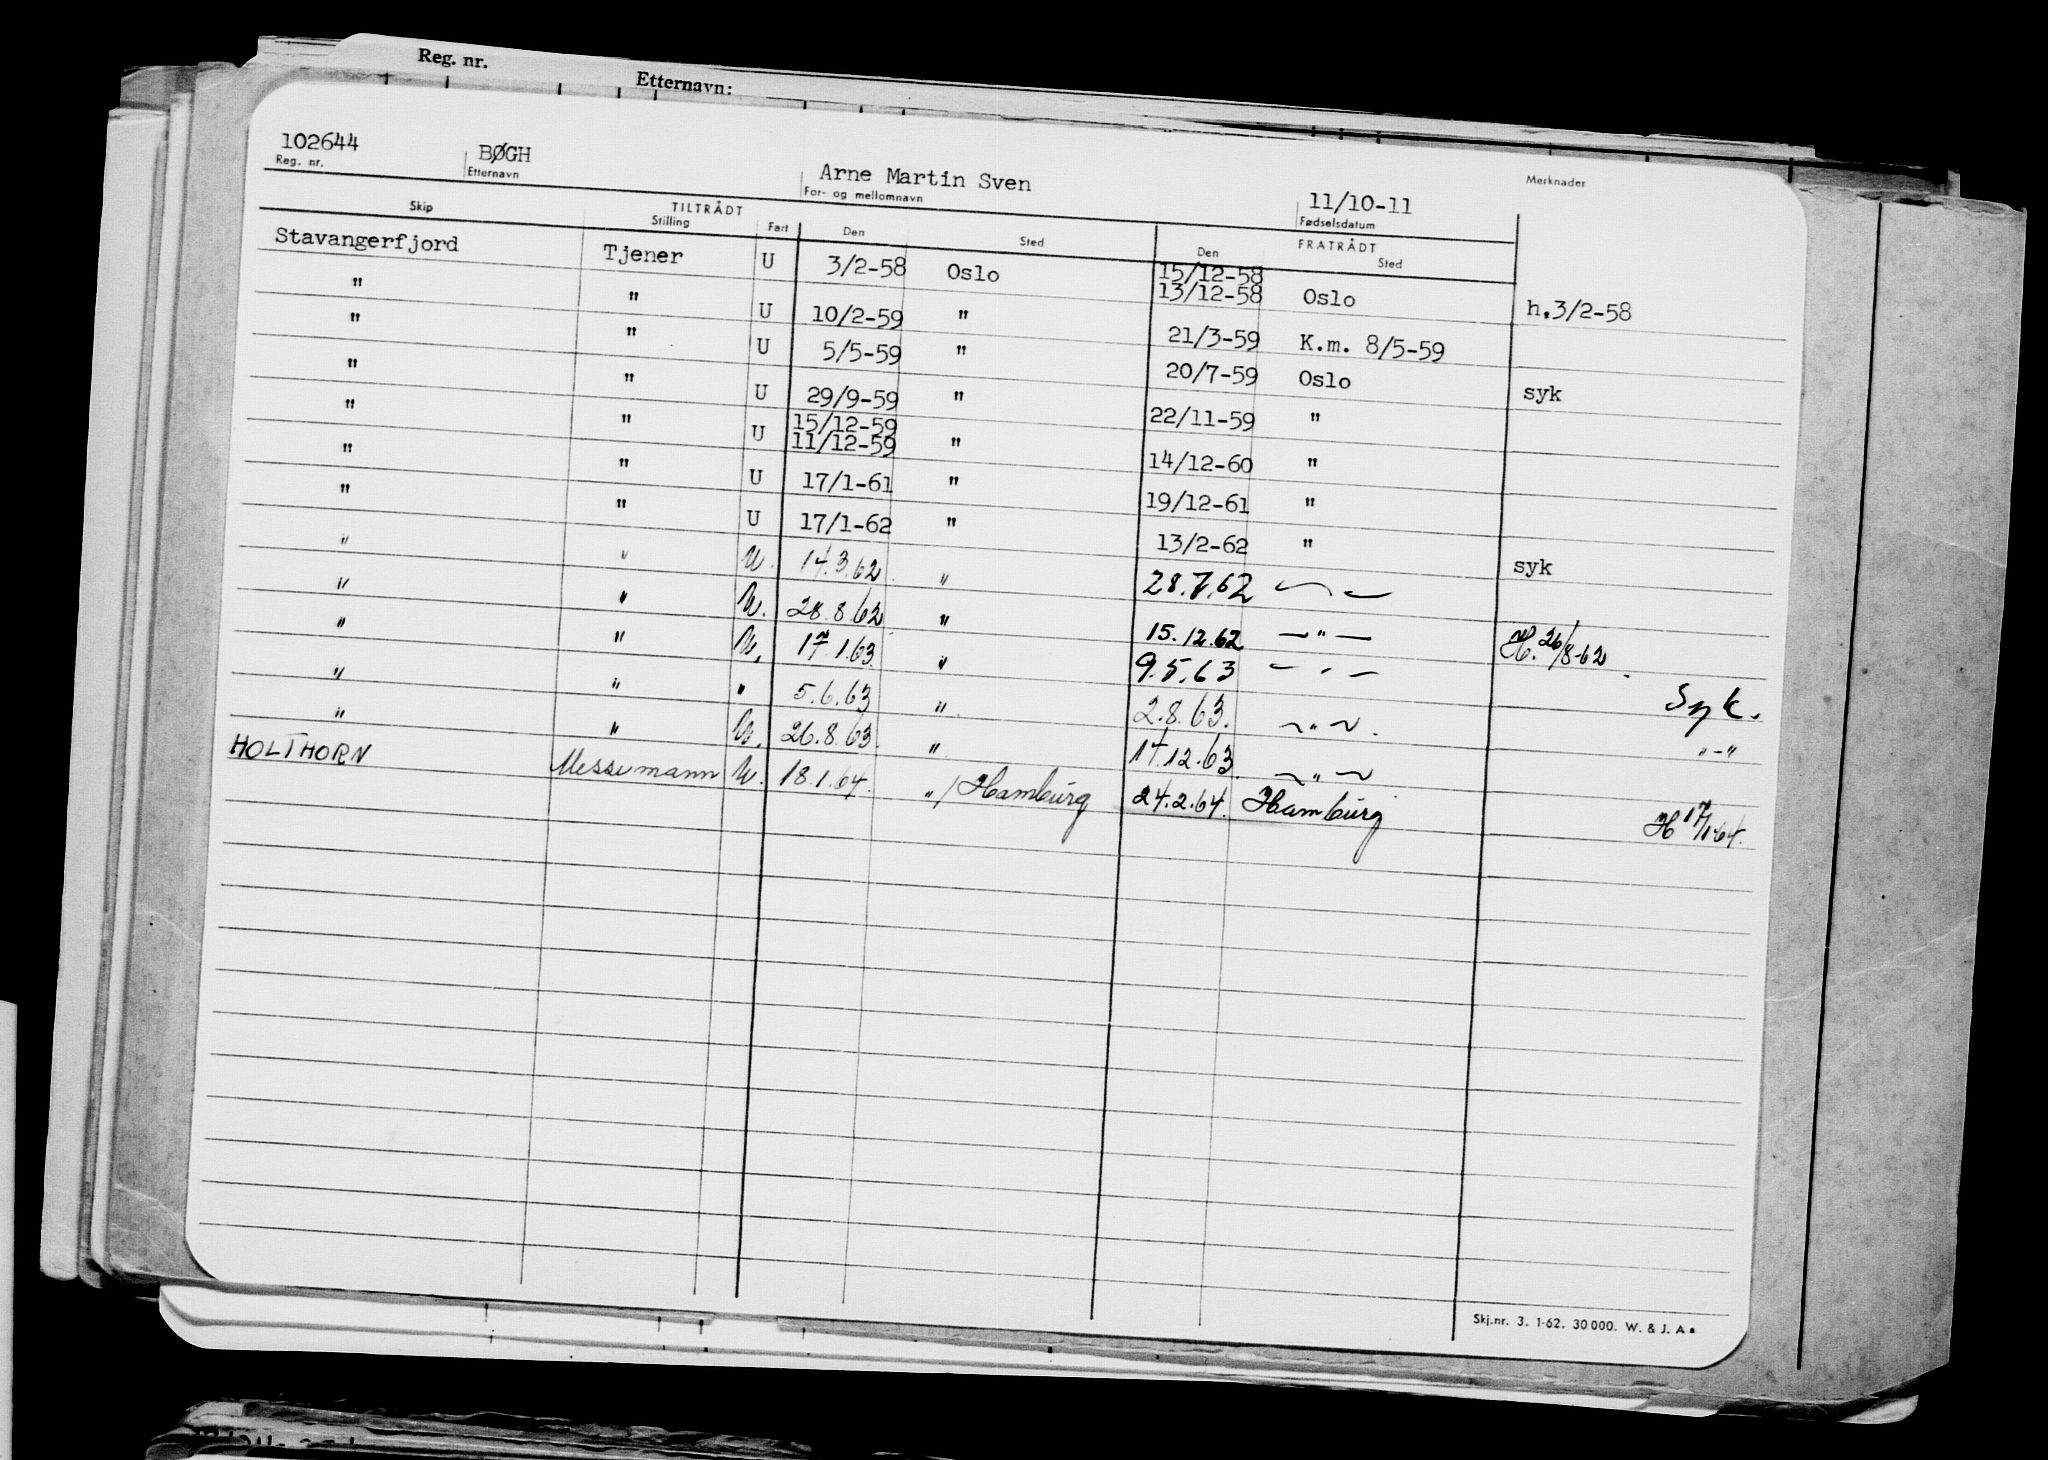 Reg. nr. Etternavn:
102644 BØGH Arne Martin Sven 11/10-11 Merknader
Reg. nr. Etternavn For- og mellomnavn Fødselsdatum
TILTRÅDT FRATRÅDT
Skip Stilling Fart Den Sted Den Sted
Stavangerfjord Tjener U 3/2-58 Oslo 15/12-58
13/12-58 Oslo h.3/2-58
" " U 10/2-59 " 21/3-59 K.m. 8/5-59
" " U 5/5-59 " 20/7-59 Oslo syk
" " U 29/9-59 " 22/11-59 "
15/12-59
" " U 11/12-59 " 14/12-60 "
" " U 17/1-61 " 19/12-61 "
" " U 17/1-62 " 13/2-62 " syk
" " U. 14.3.62 " 28.7.62 — —
" " U. 28.8.62 " 15.12.62 —"— H. 26/8-62
" " U. 17.1.63. " 9.5.63 — " — Syk.
" " " 5.6.63 " 2.8.63. —"—. "-"
" " U. 26.8.63. " 14.12.63. —"—
HOLTHORN Messemann U. 18.1.64. "/Hamburg 24.2.64. Hamburg H 17/1-64.
Skj.nr. 3. 1-62. 30 000. W. & J. A s